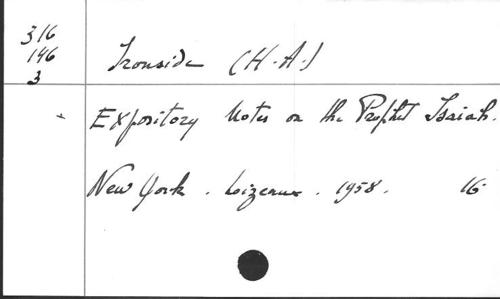 316
146
3
Ironside (H.A.)
Expository Notes on the Prophet Isaiah.
New York. Loizeaux. 1958. 16